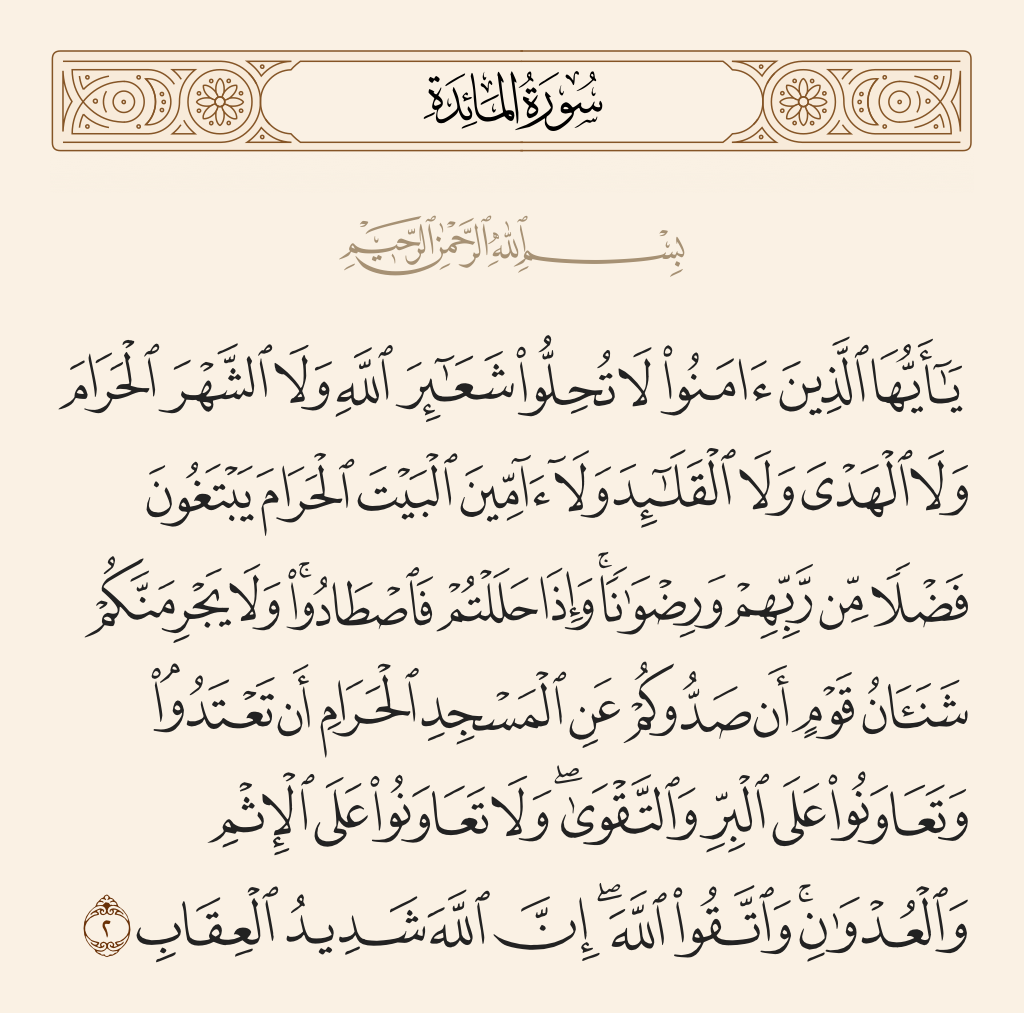 سُورَةُ المَائِدَةِ
بِسْمِ ٱللَّهِ ٱلرَّحْمَٰنِ ٱلرَّحِيمِ
يَٰٓأَيُّهَا ٱلَّذِينَ ءَامَنُوا۟ لَا تُحِلُّوا۟ شَعَٰٓئِرَ ٱللَّهِ وَلَا ٱلشَّهْرَ ٱلْحَرَامَ
وَلَا ٱلْهَدْىَ وَلَا ٱلْقَلَٰٓئِدَ وَلَآ ءَآمِّينَ ٱلْبَيْتَ ٱلْحَرَامَ يَبْتَغُونَ
فَضْلًا مِّن رَّبِّهِمْ وَرِضْوَٰنًا ۚ وَإِذَا حَلَلْتُمْ فَٱصْطَادُوا۟ ۚ وَلَا يَجْرِمَنَّكُمْ
شَنَـَٔانُ قَوْمٍ أَن صَدُّوكُمْ عَنِ ٱلْمَسْجِدِ ٱلْحَرَامِ أَن تَعْتَدُوا۟
وَتَعَاوَنُوا۟ عَلَى ٱلْبِرِّ وَٱلتَّقْوَىٰ ۖ وَلَا تَعَاوَنُوا۟ عَلَى ٱلْإِثْمِ
وَٱلْعُدْوَٰنِ ۚ وَٱتَّقُوا۟ ٱللَّهَ ۖ إِنَّ ٱللَّهَ شَدِيدُ ٱلْعِقَابِ ٢